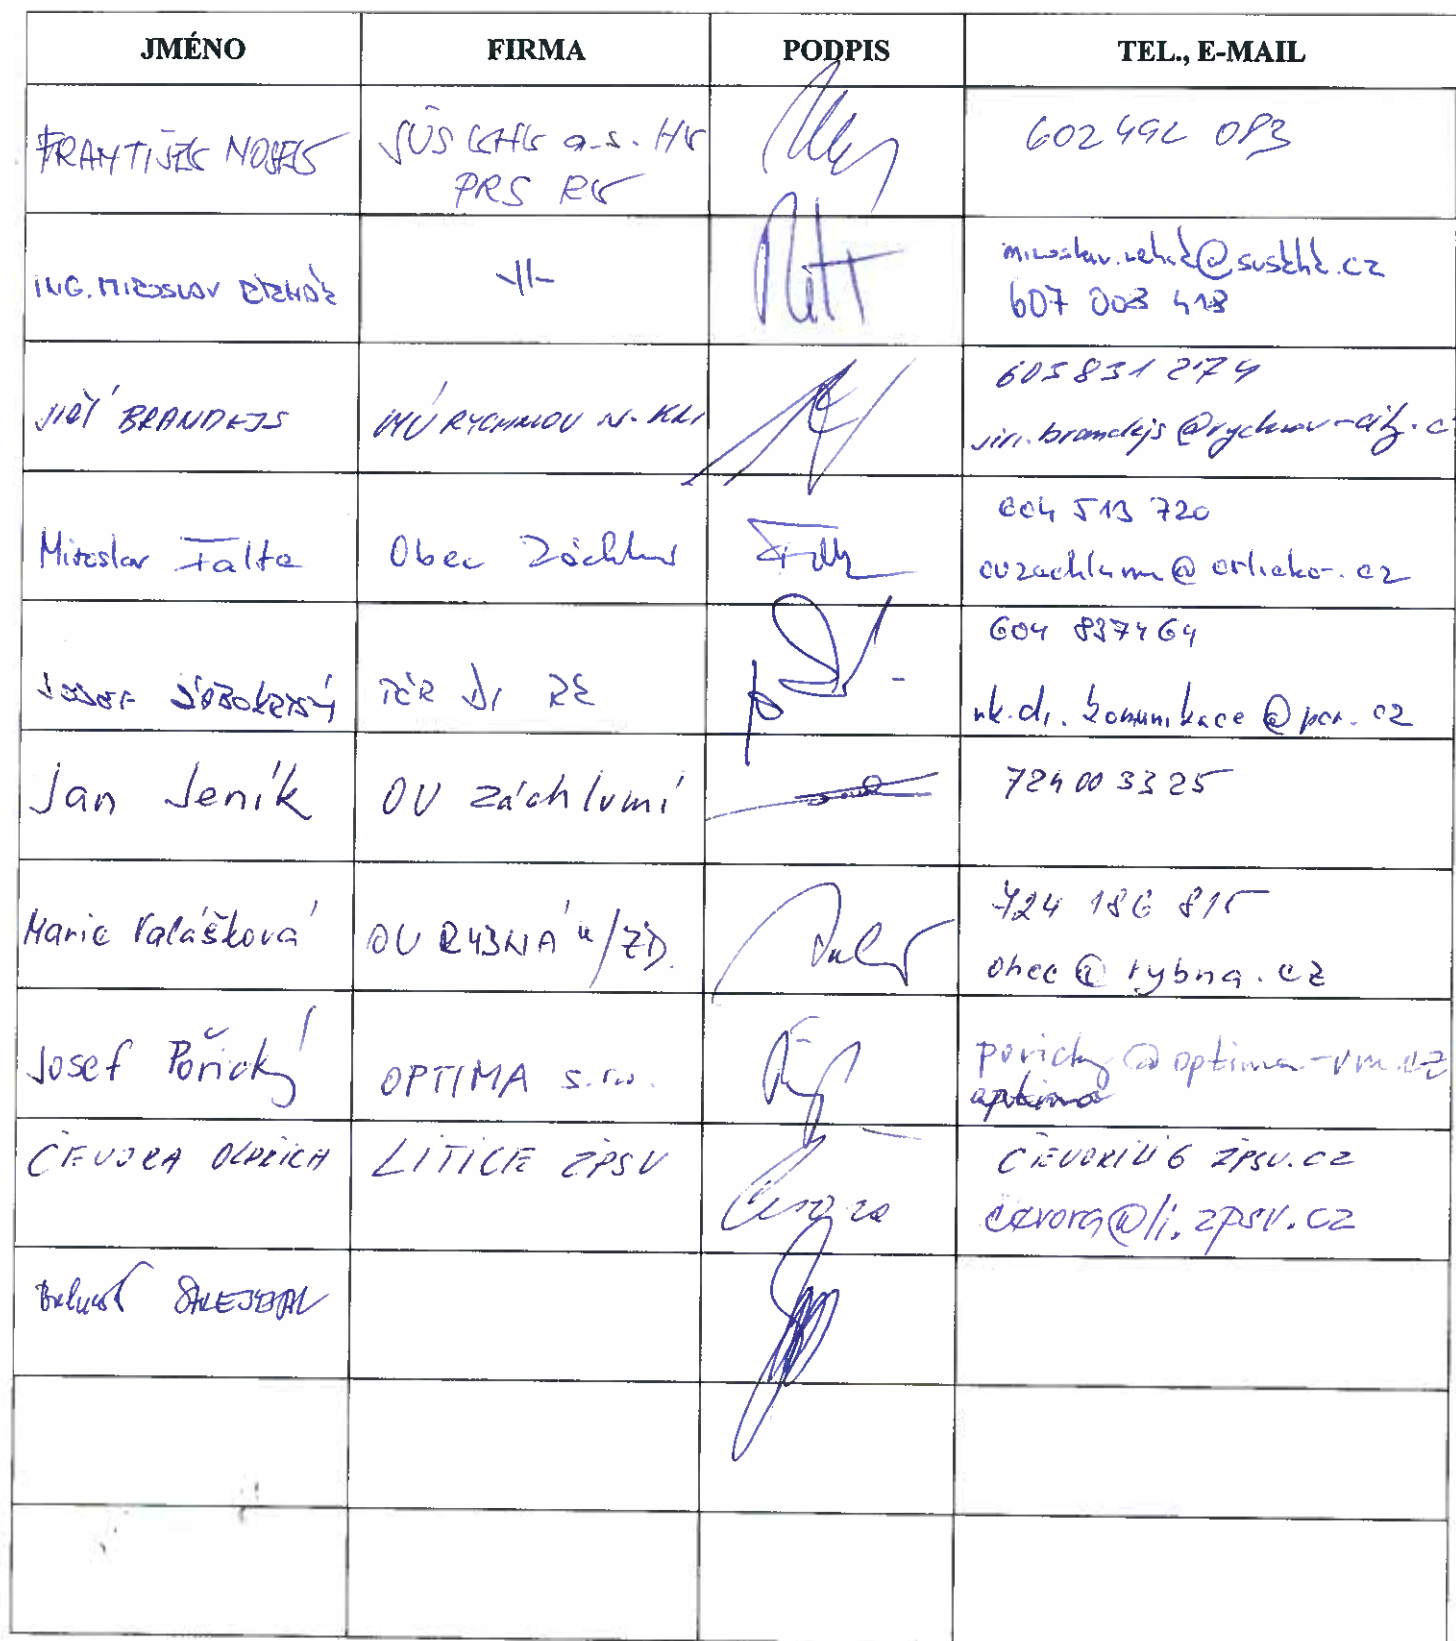 JMÉNO FIRMA PODPIS TEL., E-MAIL
FRANTIŠEK a.s. HK 602 492 083
PRS RK
ING. MIROSLAV -||- @suskhk.cz
607 003 413
JIŘÍ BRANDEJS MÚ RYCHNOV N. KN. 603 831 274
jiri.brandejs@rychnov-city.c
Miroslav Falta Obec 604 513 720
ouzachlumi@orlicko.cz
JOSEF PČR DI RK 604 837464
rk.di.komunikace@pcr.cz
Jan Jeník OU Záchlumí 724 00 33 25
Marie Valášková OU RYBNÁ n/ZD. 724 186 815
obec@rybna.cz
Josef Pořický OPTIMA s.r.o. poricky@optima-vm.cz
optima
ČEVORA OLDŘICH LITICE ŽPSV ZPSV.CZ
Čevora cevora@li.zpsv.cz